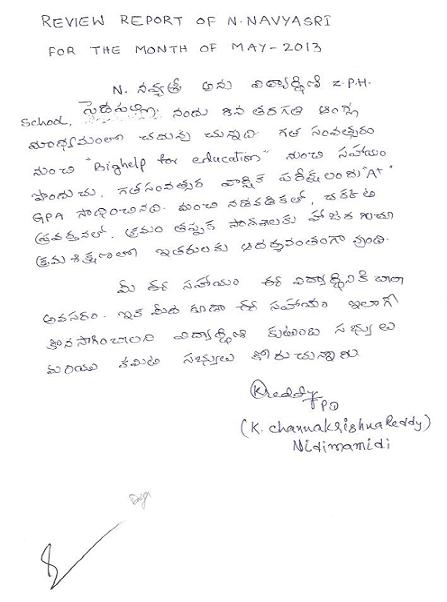 REVIEW REPORT OF N.NAVYASRI
FOR THE MONTH OF MAY-2013
N. నవ్యశ్రీ అను విద్యార్థిని Z.P.H.
School, నందు 8వ తరగతి ఆంగ్ల
మాధ్యమంలో చదువు చున్నది. గత సంవత్సరం
నుంచి "Bighelp for education" నుంచి సహాయం
పొందుచు, గతసంవత్సర వార్షిక పరీక్షలందు "A+"
GPA సాధించినది. మంచి నడవడికలో, చక్కటి
ప్రవర్తనలో, క్రమం తప్పక పాఠశాలకు హాజరగుచూ
క్రమశిక్షణలో ఇతరులకు ఆదర్శవంతంగా వుంది.
మీ ఈ సహాయం ఈ విద్యార్థినికి చాలా
అవసరం. ఇక మీద కూడా ఈ సహాయం ఇలాగే
కొనసాగించాలని విద్యార్థిని కుటుంబ సభ్యులు
మరియు కమిటి సభ్యులు కోరుచున్నారు.
KReddy
PD
(K. Channakrishna Reddy)
Nidimamidi